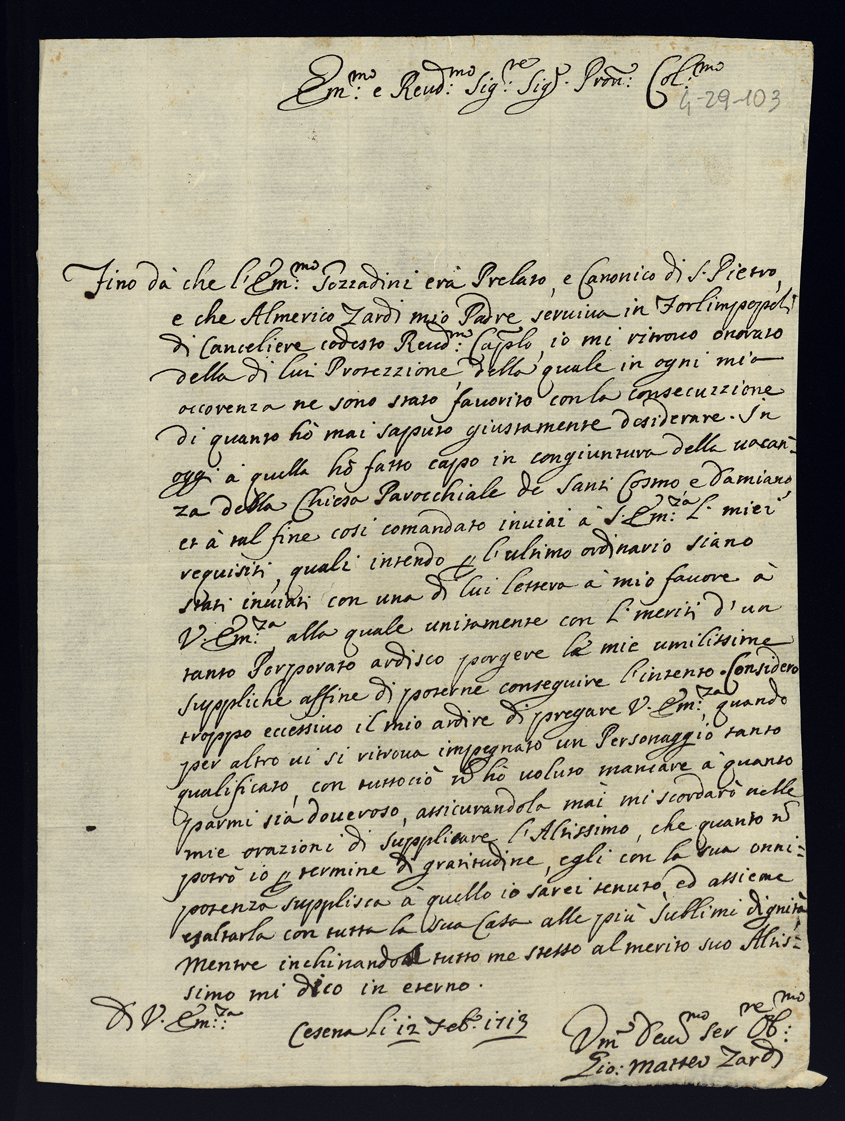 Em:mo e Reud:mo Sig:re Sig.r Pron: Col:mo
4-29-103
Fino dà che l'Em:mo Gozzadini erà Prelato, e Canonico di S. Pietro,
e che Almerico Zardi mio Padre seruiua in Forlimpopoli
di Canceliere codesto Reud:mo Caplo, io mi ritrouo onorato
della di lui Protezzione, della quale in ogni mia
occorenza ne sono stato fauorito con la consecuzzione
di quanto hò mai saputo giustamente desiderare. In
oggi à quella hò fatto capo in congiuntura della uacan=
za della Chiesa Parocchiale de Santi Cosmo e Damiano,
et à tal fine cosi comandato inuiai à S. Em:za l'miei
requisiti, quali intendo p l'ultimo ordinario siano
stati inuiati con una di lui lettera à mio fauore à
V. Em:za alla quale unitamente con l'meriti d'un
tanto Porporato ardisco porgere le mie umilissime
suppliche affine di poterne conseguire l'intento. Considero
troppo eccessiuo il mio ardire di pregare V. Em:za, quando
per altro ui si ritroua impegnato un Personaggio tanto
qualificato, con tuttociò ñ hò uoluto mancare à quanto
parmi sia doueroso, assicurandola mai mi scordarò nelle
mie orazioni di supplicare l'Altissimo, che quanto ñ
potrò io p termine di gratitudine, egli con la sua onni=
potenza supplisca à quello io sarei tenuto, ed assieme
esaltarla con tutta la sua Casa alle più sublimi dignità
Mentre inchinando tutto me stesso al merito suo Altis=
simo mi dico in eterno.
Di V. Em:za
Cesena li 12 Feb.o 1713
Vm.o Deu:mo Ser:re Ob:mo
Gio: Matteo Zardi